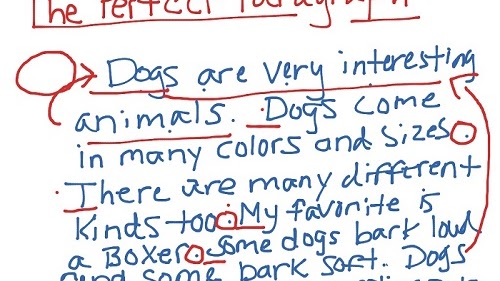 The Perfect Paragraph
Dogs are very interesting
animals. Dogs come
in many colors and sizes.
There are many different
kinds too. My favorite is
a Boxer. Some dogs bark loud
and some bark soft. Dogs